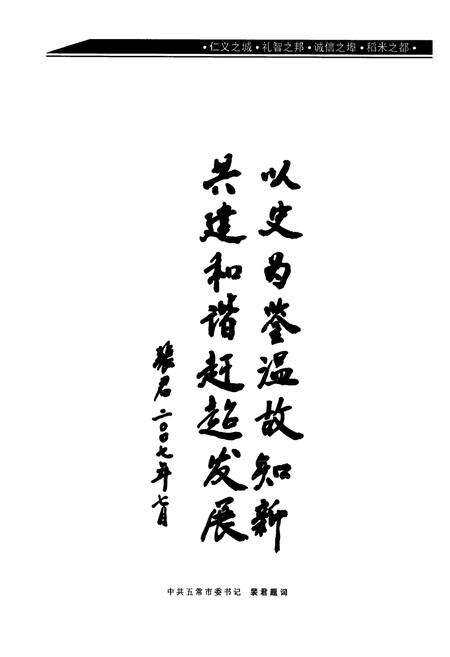 ·仁义之城·礼智之邦·诚信之埠·稻米之都·
以史为鉴温故知新
共建和谐赶超发展
裴君二〇〇七年七月
中共五常市委书记 裴君题词